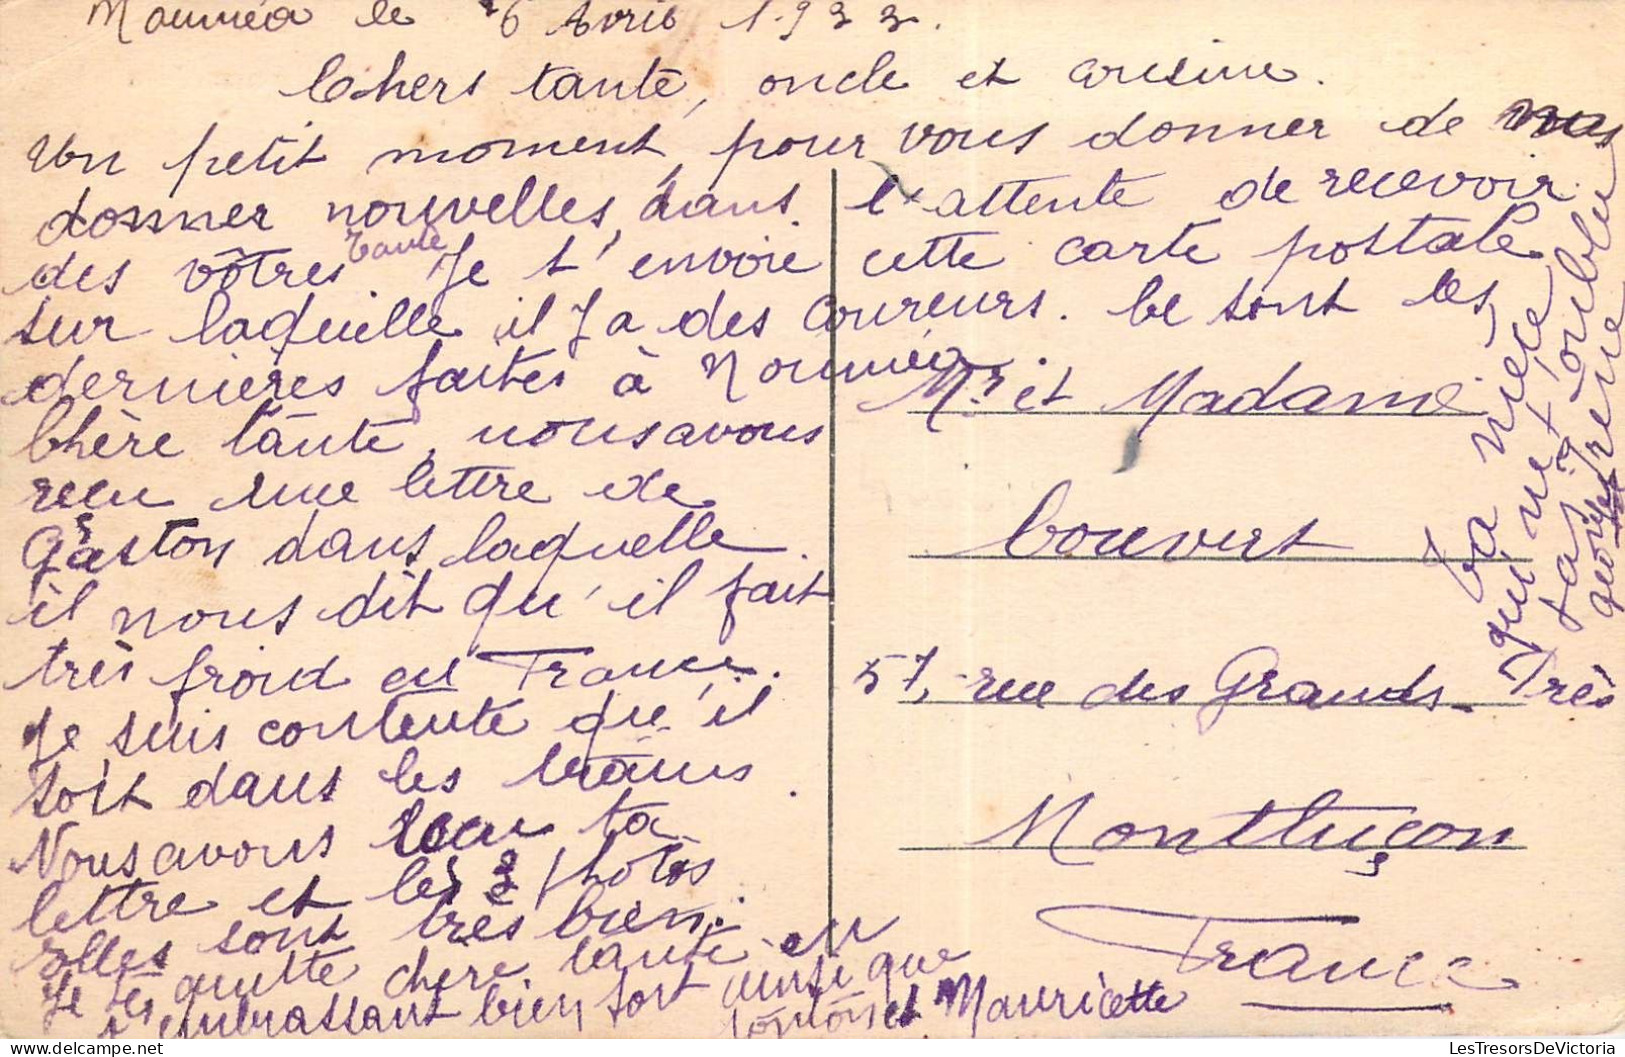 Nouméa le 16 Avril 1933.
Chers tante, oncle et cousine.
Un petit moment, pour vous donner de nos
donner nouvelles, dans l'attente de recevoir
des vôtres tante Je t'envoie cette carte postale
sur laquelle il y a des coureurs. Ce sont les
dernières faites à Nouméa
Chère tante, nous avons
reçu une lettre de
Gaston dans laquelle
il nous dit qu'il fait
très froid en France.
Je suis contente qu'il
soit dans les trains.
Nous avons reçu ta
lettre et les 2 photos
elles sont très bien.
Je te quitte chère tante en
t'embrassant bien fort ainsi que
tonton et Mauricette
Ta nièce
qui ne t'oublie
pas.
Très
Mr et Madame
Couvert
57, rue des Grands-Prés
Montluçon
France
LesTresorsDeVictoria